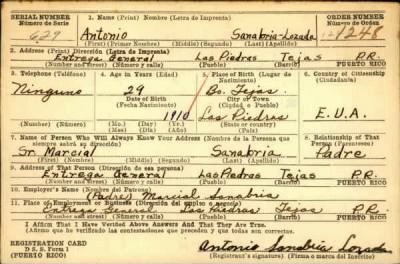 SERIAL NUMBER 1. Name (Print) Nombre (Letra de Imprenta) ORDER NUMBER
Número de Serie Número de Orden
629 Antonio Sanabria-Lozada 1248
(First) (Primer Nombre) (Middle) (Segundo) (Last) (Apellido)
2. Address (Print) Dirección (Letra de Imprenta)
Entrega General Las Piedras Tejas P.R.
(Number and street) (Número y calle) (Town) (Pueblo) PUERTO RICO
3. Telephone (Teléfono) 4. Age in Years (Edad) 5. Place of Birth (Lugar de Nacimiento) 6. Country of Citizenship (Ciudadanía)
Ninguno 29 Bo. Tejas
Date of Birth City or Town
(Fecha Nacimiento) (Ciudad o Pueblo)
1910 Las Piedras E.U.A.
(Mo.) (Day) (Yr.) State or country)
(Mes) (Día) (Año) (Estado o País)
7. Name of Person Who Will Always Know Your Address (Nombre de la Persona que siempre sabrá su dirección) 8. Relationship of That Person (Parentesco)
Sr. Marcial Sanabria Padre
(Fore) (Nombre) (Middle) (Segundo) (Last) (Apellido)
9. Address of That Person (Dirección de esa persona)
Entrega General Las Piedras Tejas P.R.
(Number and street) (Número y calle) (Town) (Pueblo) PUERTO RICO
10. Employer's Name (Nombre del Patrono)
(Padre) Marcial Sanabria
11. Place of Employment or Business (Dirección del empleo o negocio)
Entrega General Las Piedras Tejas P.R.
(Number and street) (Número y calle) (Town) (Pueblo) PUERTO RICO
I Affirm That I Have Verified Above Answers And That They Are True.
Afirmo que he verificado las contestaciones que preceden y que todas son ciertas.
REGISTRATION CARD
D. S. S. Form 1 Antonio Sanabria Lozada
PUERTO RICO (Registrant's signature) (Firma o marca del Inscrito)